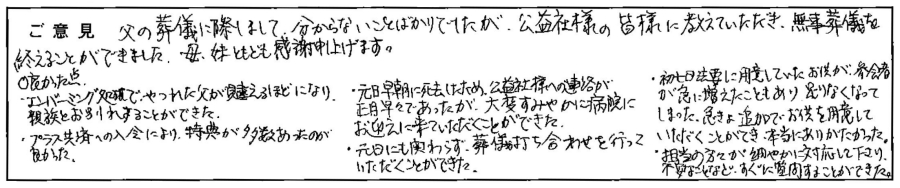 ご意見 父の葬儀に際しまして、分からないことばかりでしたが、公益社様の皆様に教えていただき、無事葬儀を
終えることができました。母、妹ともども感謝申し上げます。
○良かった点
・エンバーミング処理で、やつれた父が見違えるほどになり、
親族とお別れすることができた。
・プラス共済への入会により、特典が多数あったのが
良かった。
・元日早朝に死去したため、公益社様への連絡が
正月早々であったが、大変すみやかに病院に
お迎えに来ていただくことができた。
・元日にも関わらず、葬儀打ち合わせを行って
いただくことができた。
・初七日法要に用意していたお供が、参会者
が急に増えたこともあり足りなくなって
しまった。急きょ追加でお供を用意して
いただくことができ、本当にありがたかった。
・担当の方々が細やかに対応して下さり、
不安なことなど、すぐに質問することができた。